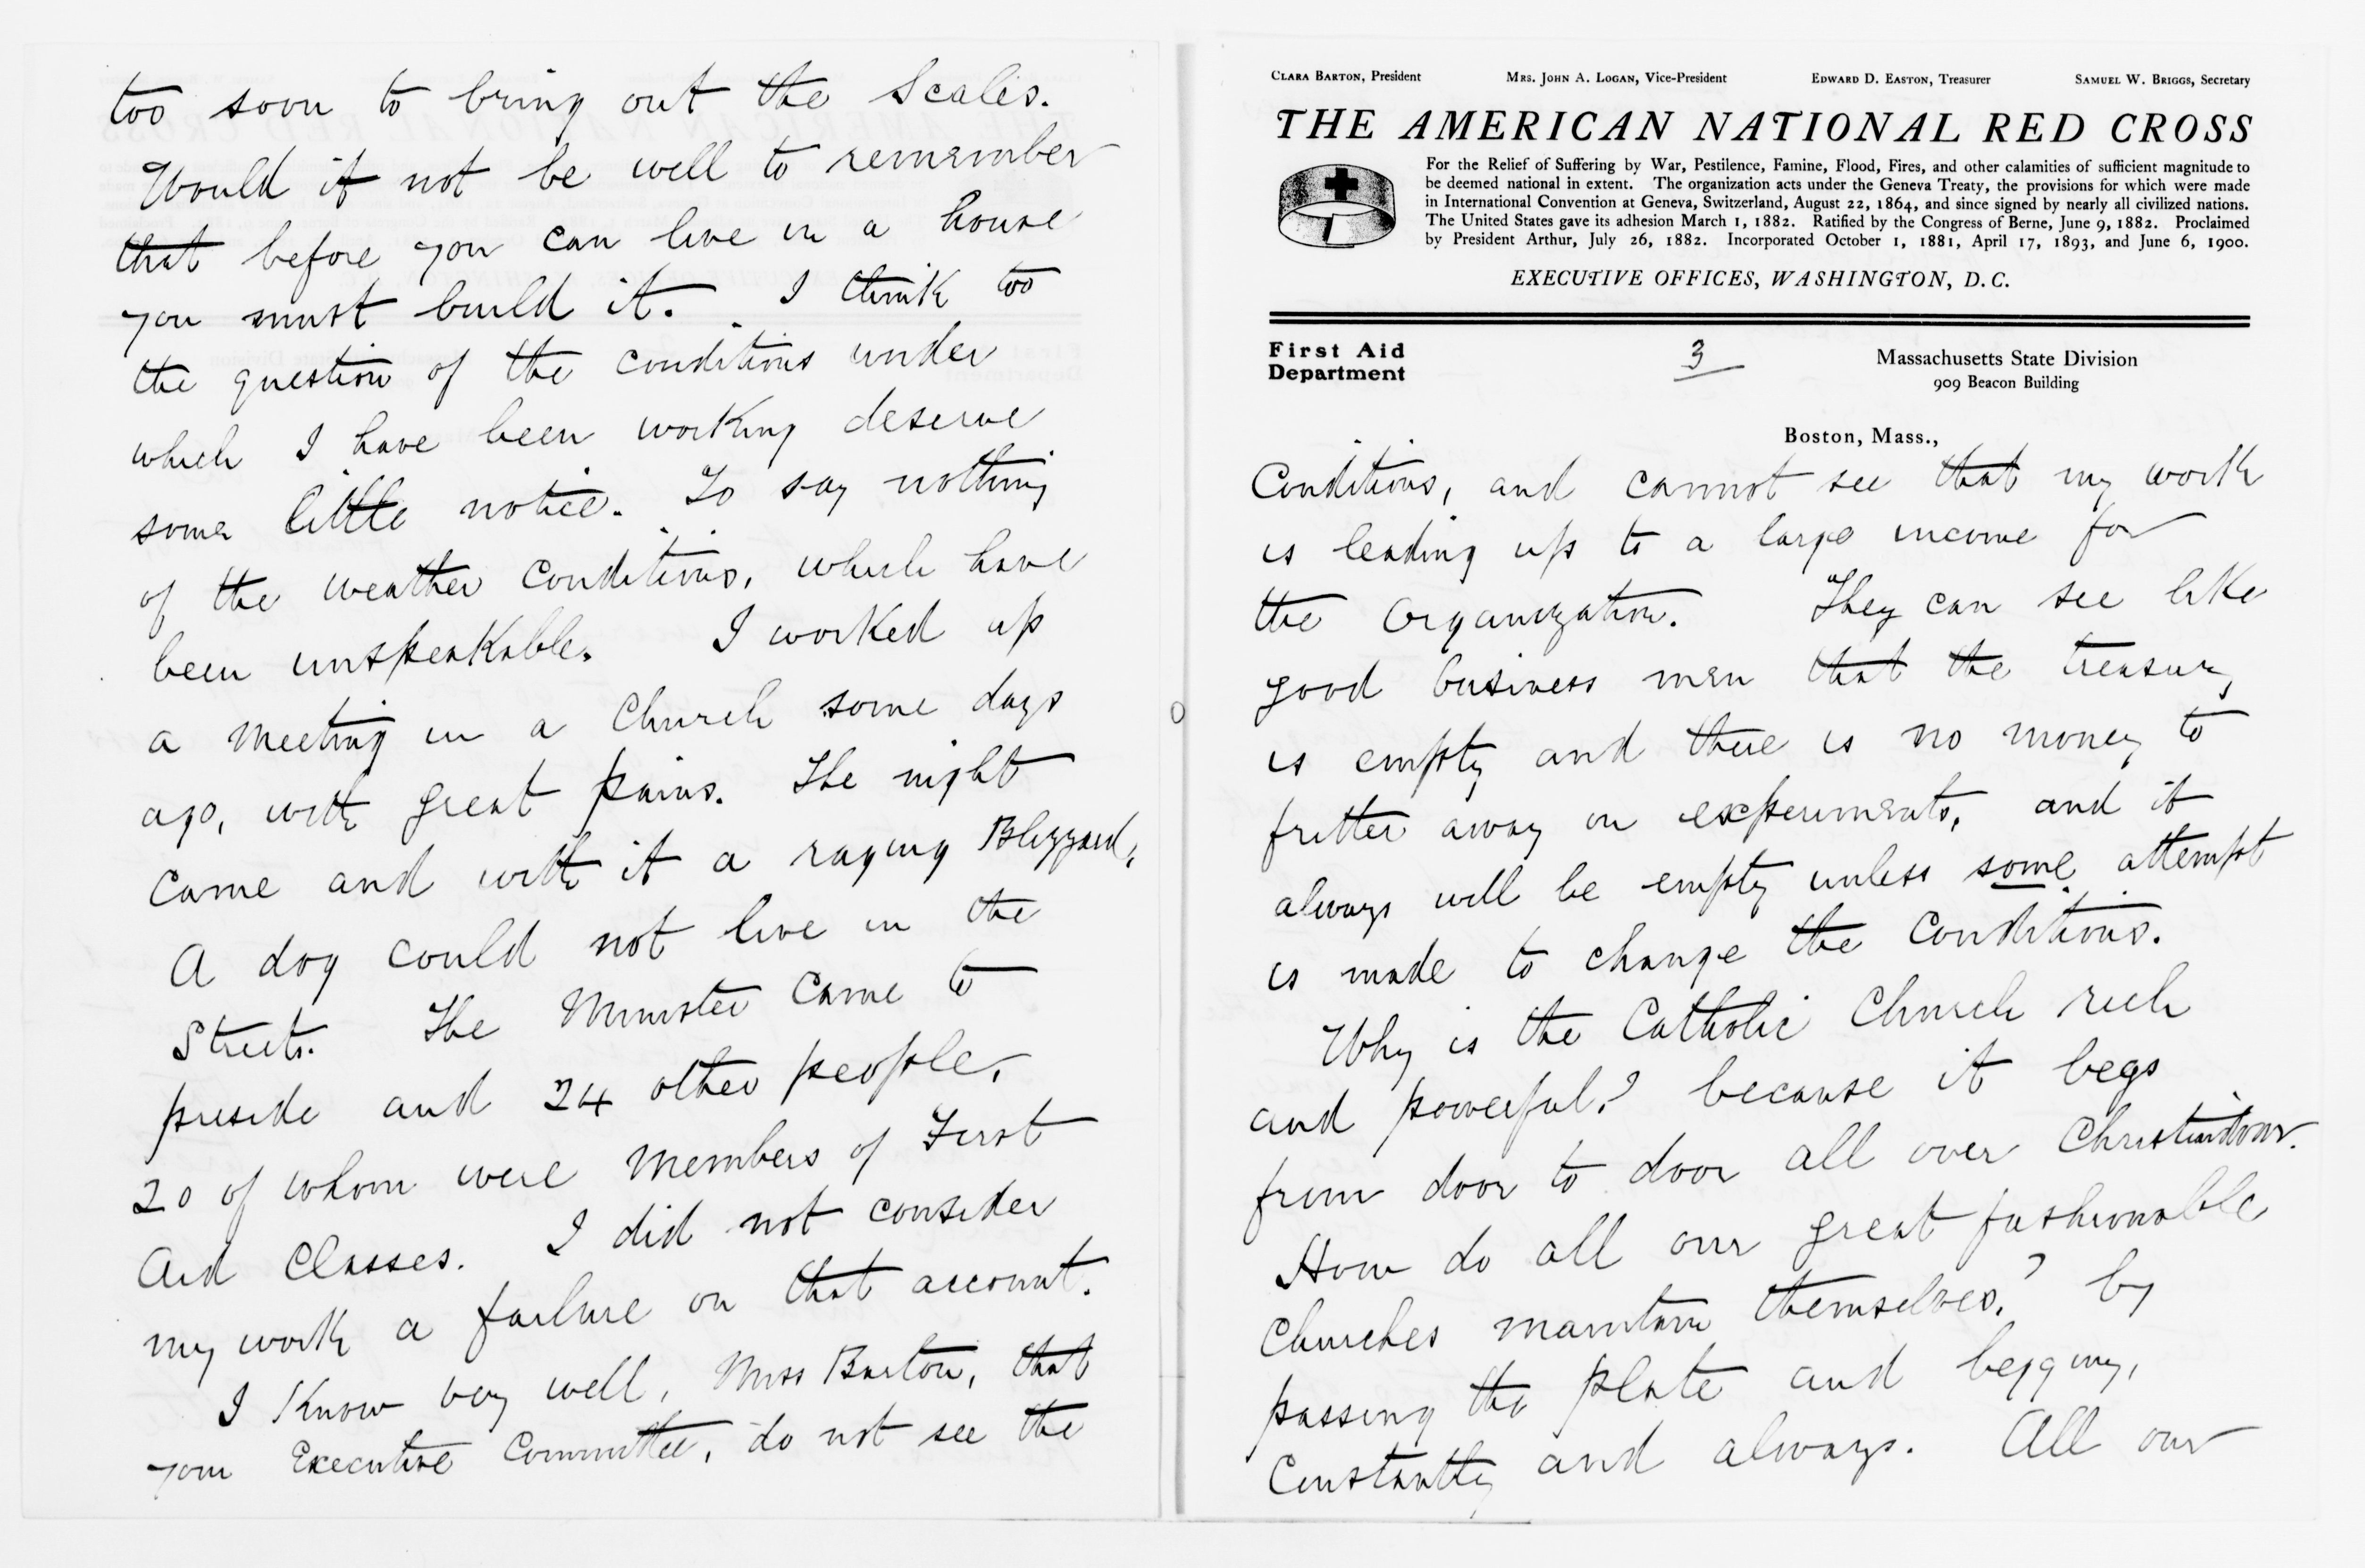 too soon to bring out the Scales.
Would it not be well to remember
that before you can live in a house
you must build it. I think too
the question of the conditions under
which I have been working deserve
some little notice. To say nothing
of the weather conditions, which have
been unspeakable. I worked up
a meeting in a Church some days
ago, with great pains. The night
came and with it a raging Blizzard,
A dog could not live in the
Streets. The Minister came to
preside and 24 other people,
20 of whom were members of First
Aid Classes. I did not consider
my work a failure on that account.
I know very well, Miss Barton, that
your Executive Committee, do not see the
CLARA BARTON, President MRS. JOHN A. LOGAN, Vice-President EDWARD D. EASTON, Treasurer SAMUEL W. BRIGGS, Secretary
THE AMERICAN NATIONAL RED CROSS
For the Relief of Suffering by War, Pestilence, Famine, Flood, Fires, and other calamities of sufficient magnitude to
be deemed national in extent. The organization acts under the Geneva Treaty, the provisions for which were made
in International Convention at Geneva, Switzerland, August 22, 1864, and since signed by nearly all civilized nations.
The United States gave its adhesion March 1, 1882. Ratified by the Congress of Berne, June 9, 1882. Proclaimed
by President Arthur, July 26, 1882. Incorporated October 1, 1881, April 17, 1893, and June 6, 1900.
EXECUTIVE OFFICES, WASHINGTON, D.C.
First Aid
Department
3
Massachusetts State Division
909 Beacon Building
Boston, Mass.,
Conditions, and cannot see that my work
is leading up to a large income for
the Organization. They can see like
good business men that the treasury
is empty and there is no money to
fritter away on experiments, and it
always will be empty unless some attempt
is made to change the Conditions.
Why is the Catholic Church rich
and powerful? because it begs
from door to door all over Christendom.
How do all our great fashionable
Churches maintain themselves? by
passing the plate and begging,
Constantly and always. All our